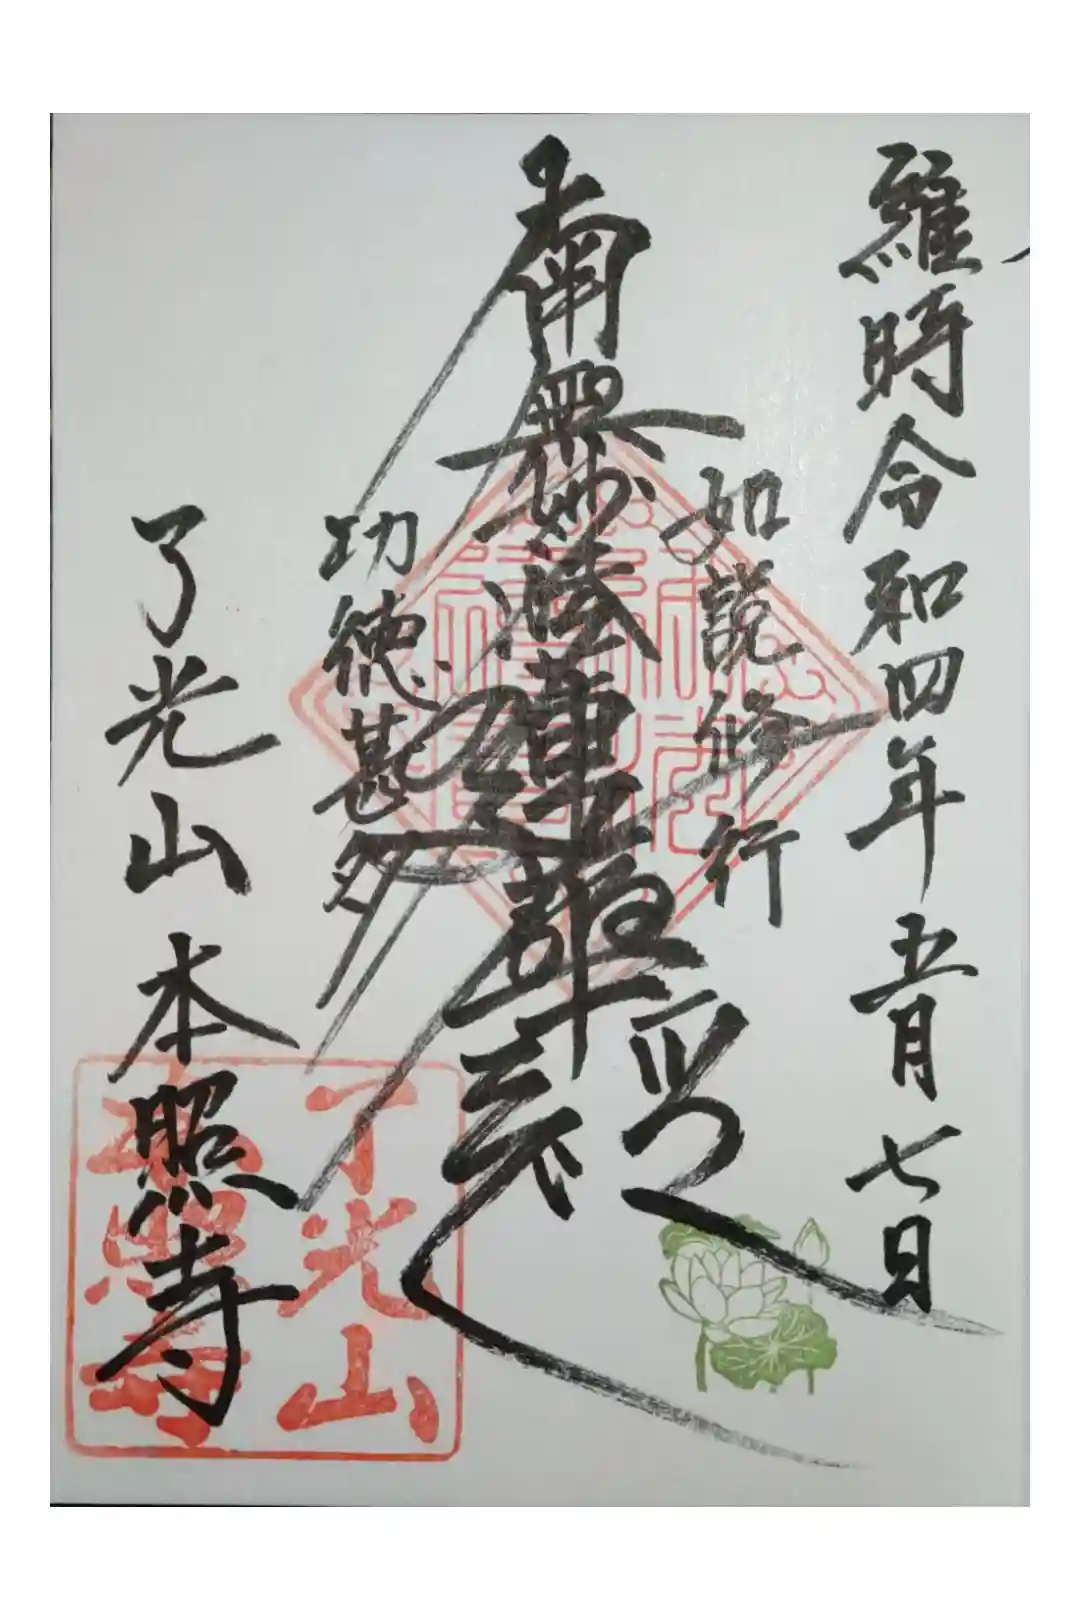 維時令和四年五月七日
如説修行
南無妙法蓮華経
功徳甚多
了光山 本照寺
了光山
本照寺